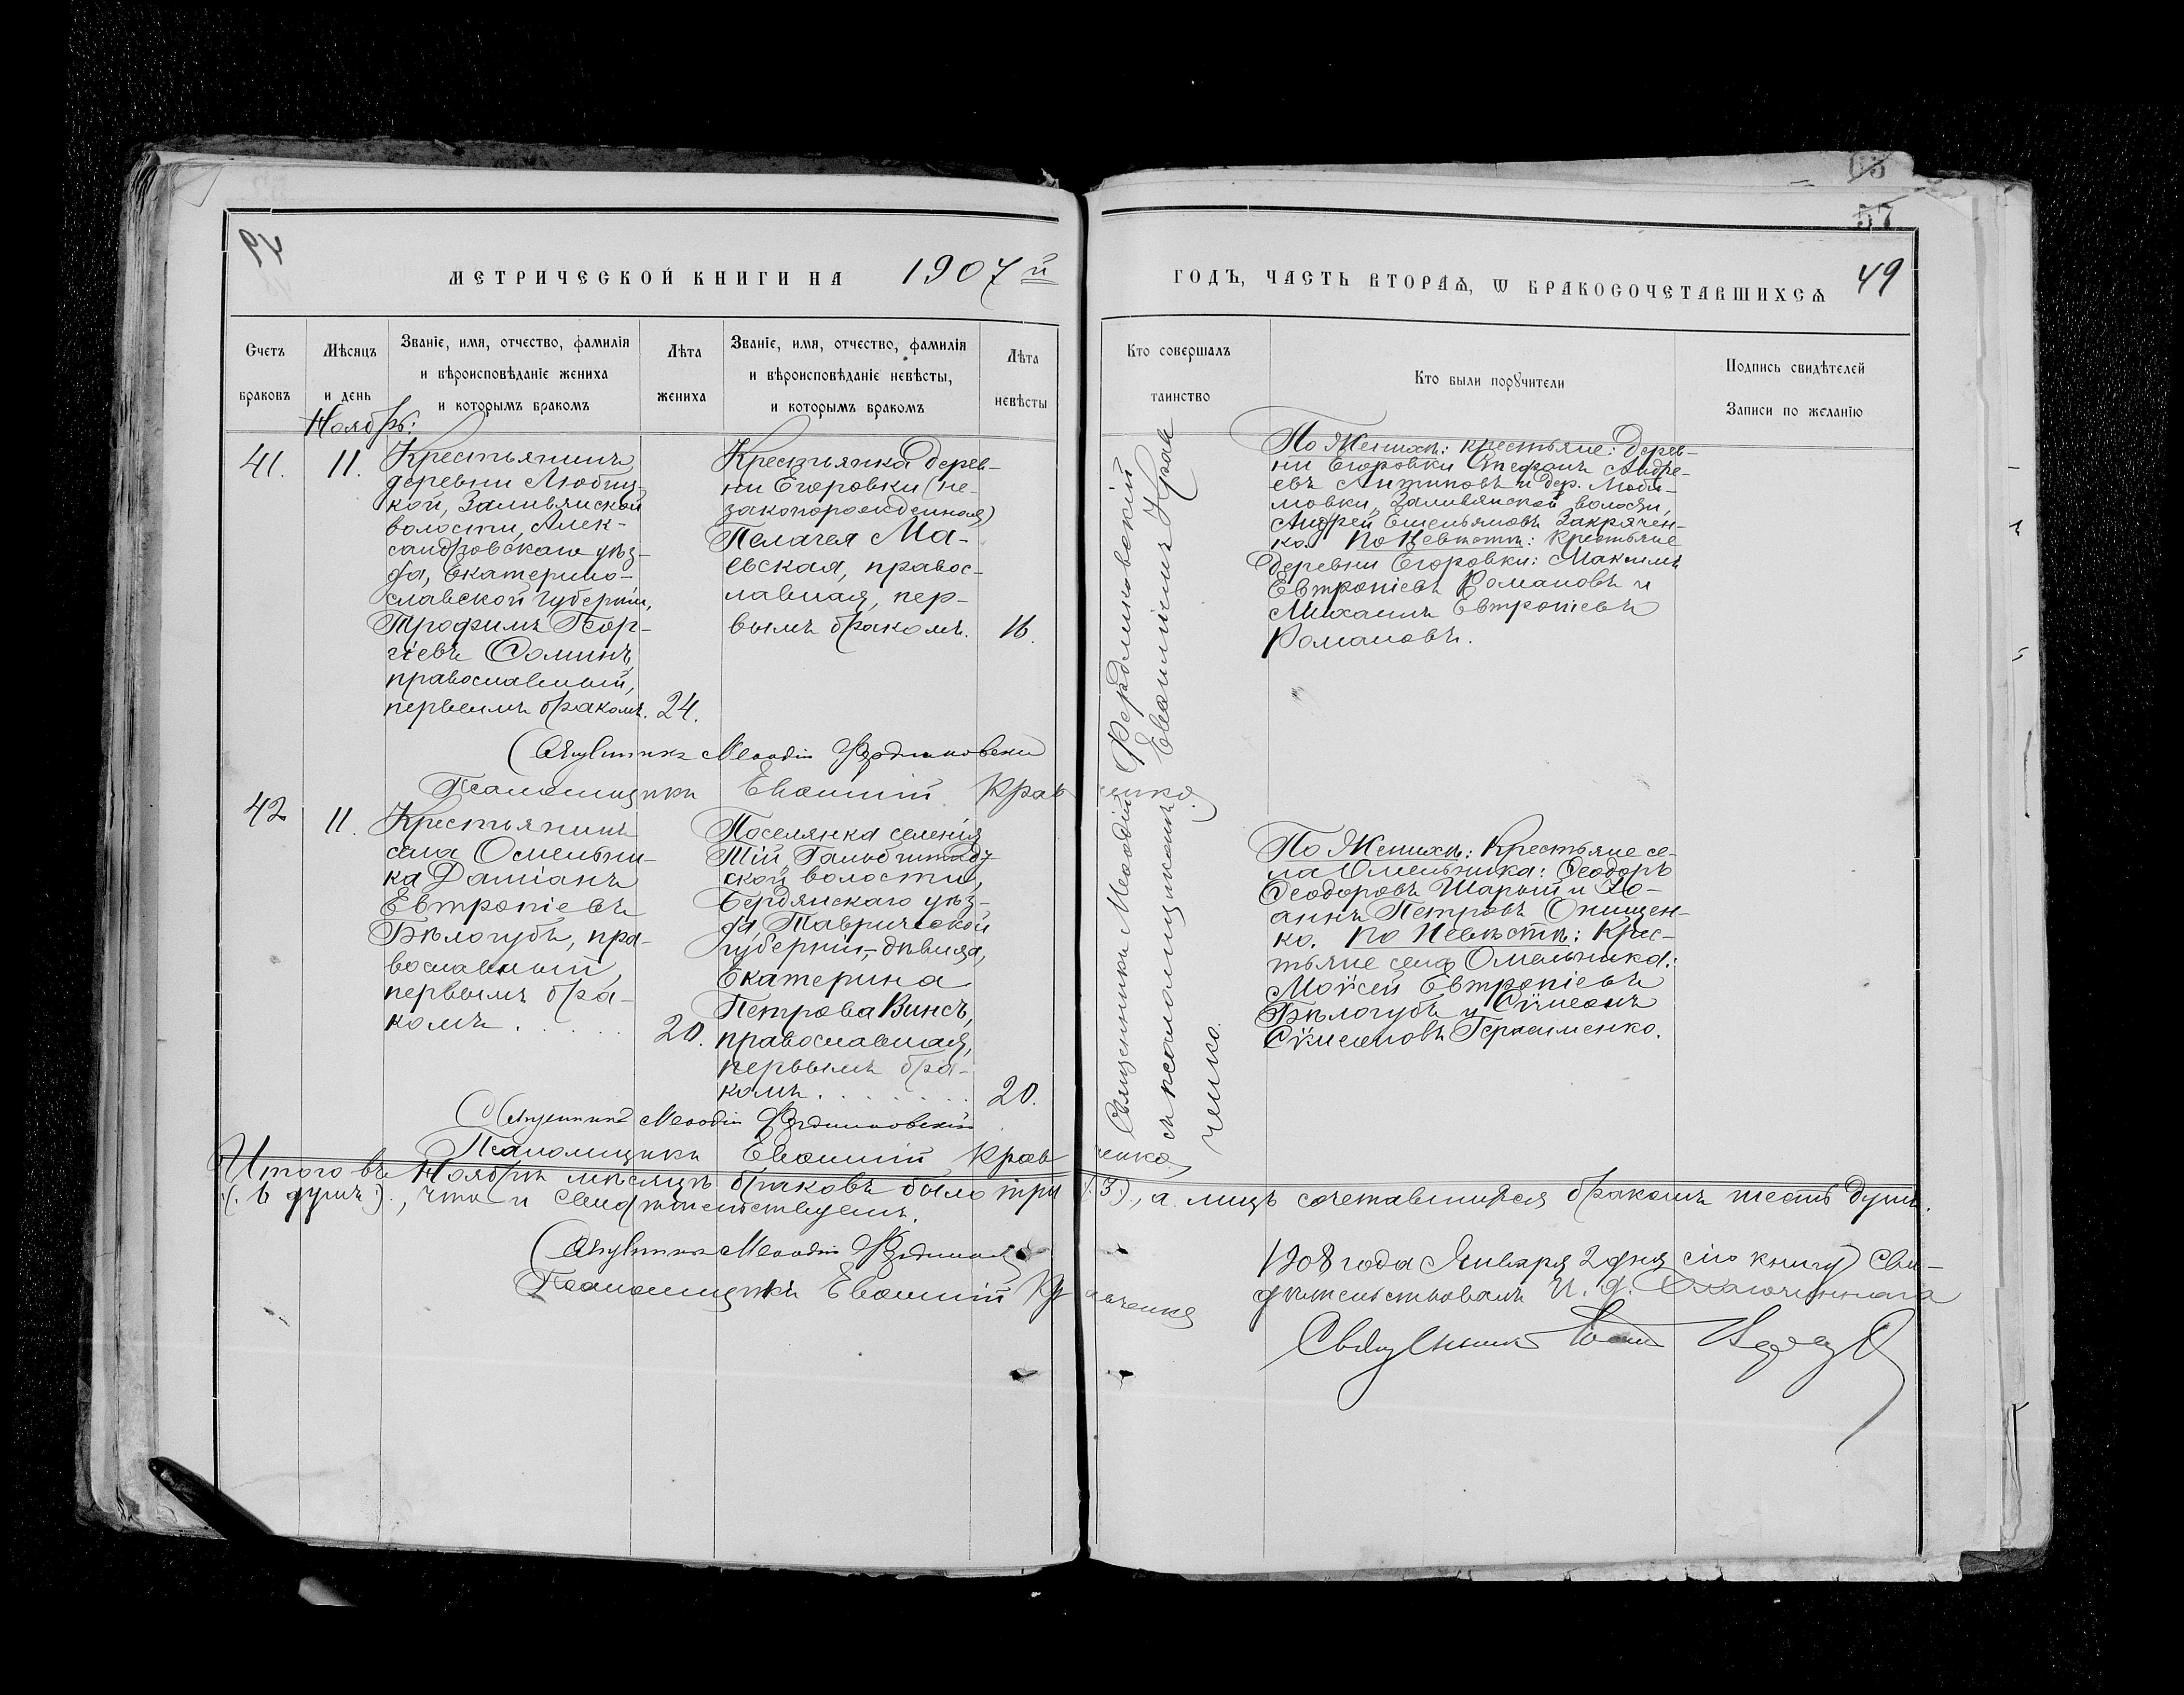 65
57
49
МЕТРИЧЕСКОЙ КНИГИ НА 1907й
ГОДЪ, ЧАСТЬ ВТОРАѦ, Ѡ БРАКОСОЧЕТАВШИХСѦ 49
Счетъ
браковъ
Мѣсяцъ
и день
Званіе, имя, отчество, фамилія
и вѣроисповѣданіе жениха
и которымъ бракомъ
Лѣта
жениха
Званіе, имя, отчество, фамилія
и вѣроисповѣданіе невѣсты,
и которымъ бракомъ
Лѣта
невѣсты
Кто совершалъ
таинство
Кто были порꙋчители
Подпись свидѣтелей
Записи по желанію
Ноябрь:
41.
11.
Крестьянинъ
деревни Любиц-
кой, Заливянской
волости, Алек-
сандровскаго уѣз-
да, Екатерино-
славской губерніи,
Трофимъ Геор-
гіевъ Соминъ,
православный,
первымъ бракомъ.
24.
Крестьянка дерев-
ни Егоровки (не-
законорожденная)
Пелагея Ма-
евская, правос-
лавная, пер-
вымъ бракомъ.
16.
Священникъ Меѳодій Фердиновскій
съ псаломщикомъ Евѳиміемъ Крав
ченко.
По Женихѣ: крестьяне: дерев-
ни Егоровки Стефанъ Андре-
евъ Антиповъ и дер. Люби-
мовки, Заливянской волости,
Андрей Емельяновъ Закрячен-
ко. По Невѣстѣ: крестьяне
деревни Егоровки: Максимъ
Евтропіевъ Романовъ и
Михаилъ Евтропіевъ
Романовъ.
Священникъ Меѳодій Фердиновскій
Псаломщикъ Евѳимій Кравченко.
42
11.
Крестьянинъ
села Омельни-
ка Даміанъ
Евтропіевъ
Бѣлогубъ, пра-
вославный,
первымъ бра-
комъ . . . . .
20.
Поселянка селенія
Тій, Гальбштадт
ской волости,
Бердянскаго уѣз-
да, Таврической
губерніи, дѣвица,
Екатерина
Петрова Винсъ,
православная,
первымъ бра-
комъ . . . . . . . .
20.
По Женихѣ: Крестьяне се-
ла Омельника: Ѳеодоръ
Ѳеодоровъ Шарый и Іо-
аннъ Петровъ Онищен-
ко. По Невѣстѣ: Крес-
тьяне села Омельника:
Моѵсей Евтропіевъ
Бѣлогубъ и Сѵмеонъ
Сѵмеоновъ Герасименко.
Священникъ Меѳодій Фердиновскій
Псаломщикъ Евѳимій Кравченко.
Итого въ Ноябрѣ мѣсяцѣ браковъ было три (:3:), а лицъ сочетавшихся бракомъ шесть душъ.
(:6 душъ:), что и свидѣтельствуемъ.
Священникъ Меѳодій Фердиновскій
Псаломщикъ Евѳимій Кравченко
1908 года Января 2 дня сію книгу сви-
дѣтельствовалъ И. д. Благочиннаго
Священникъ